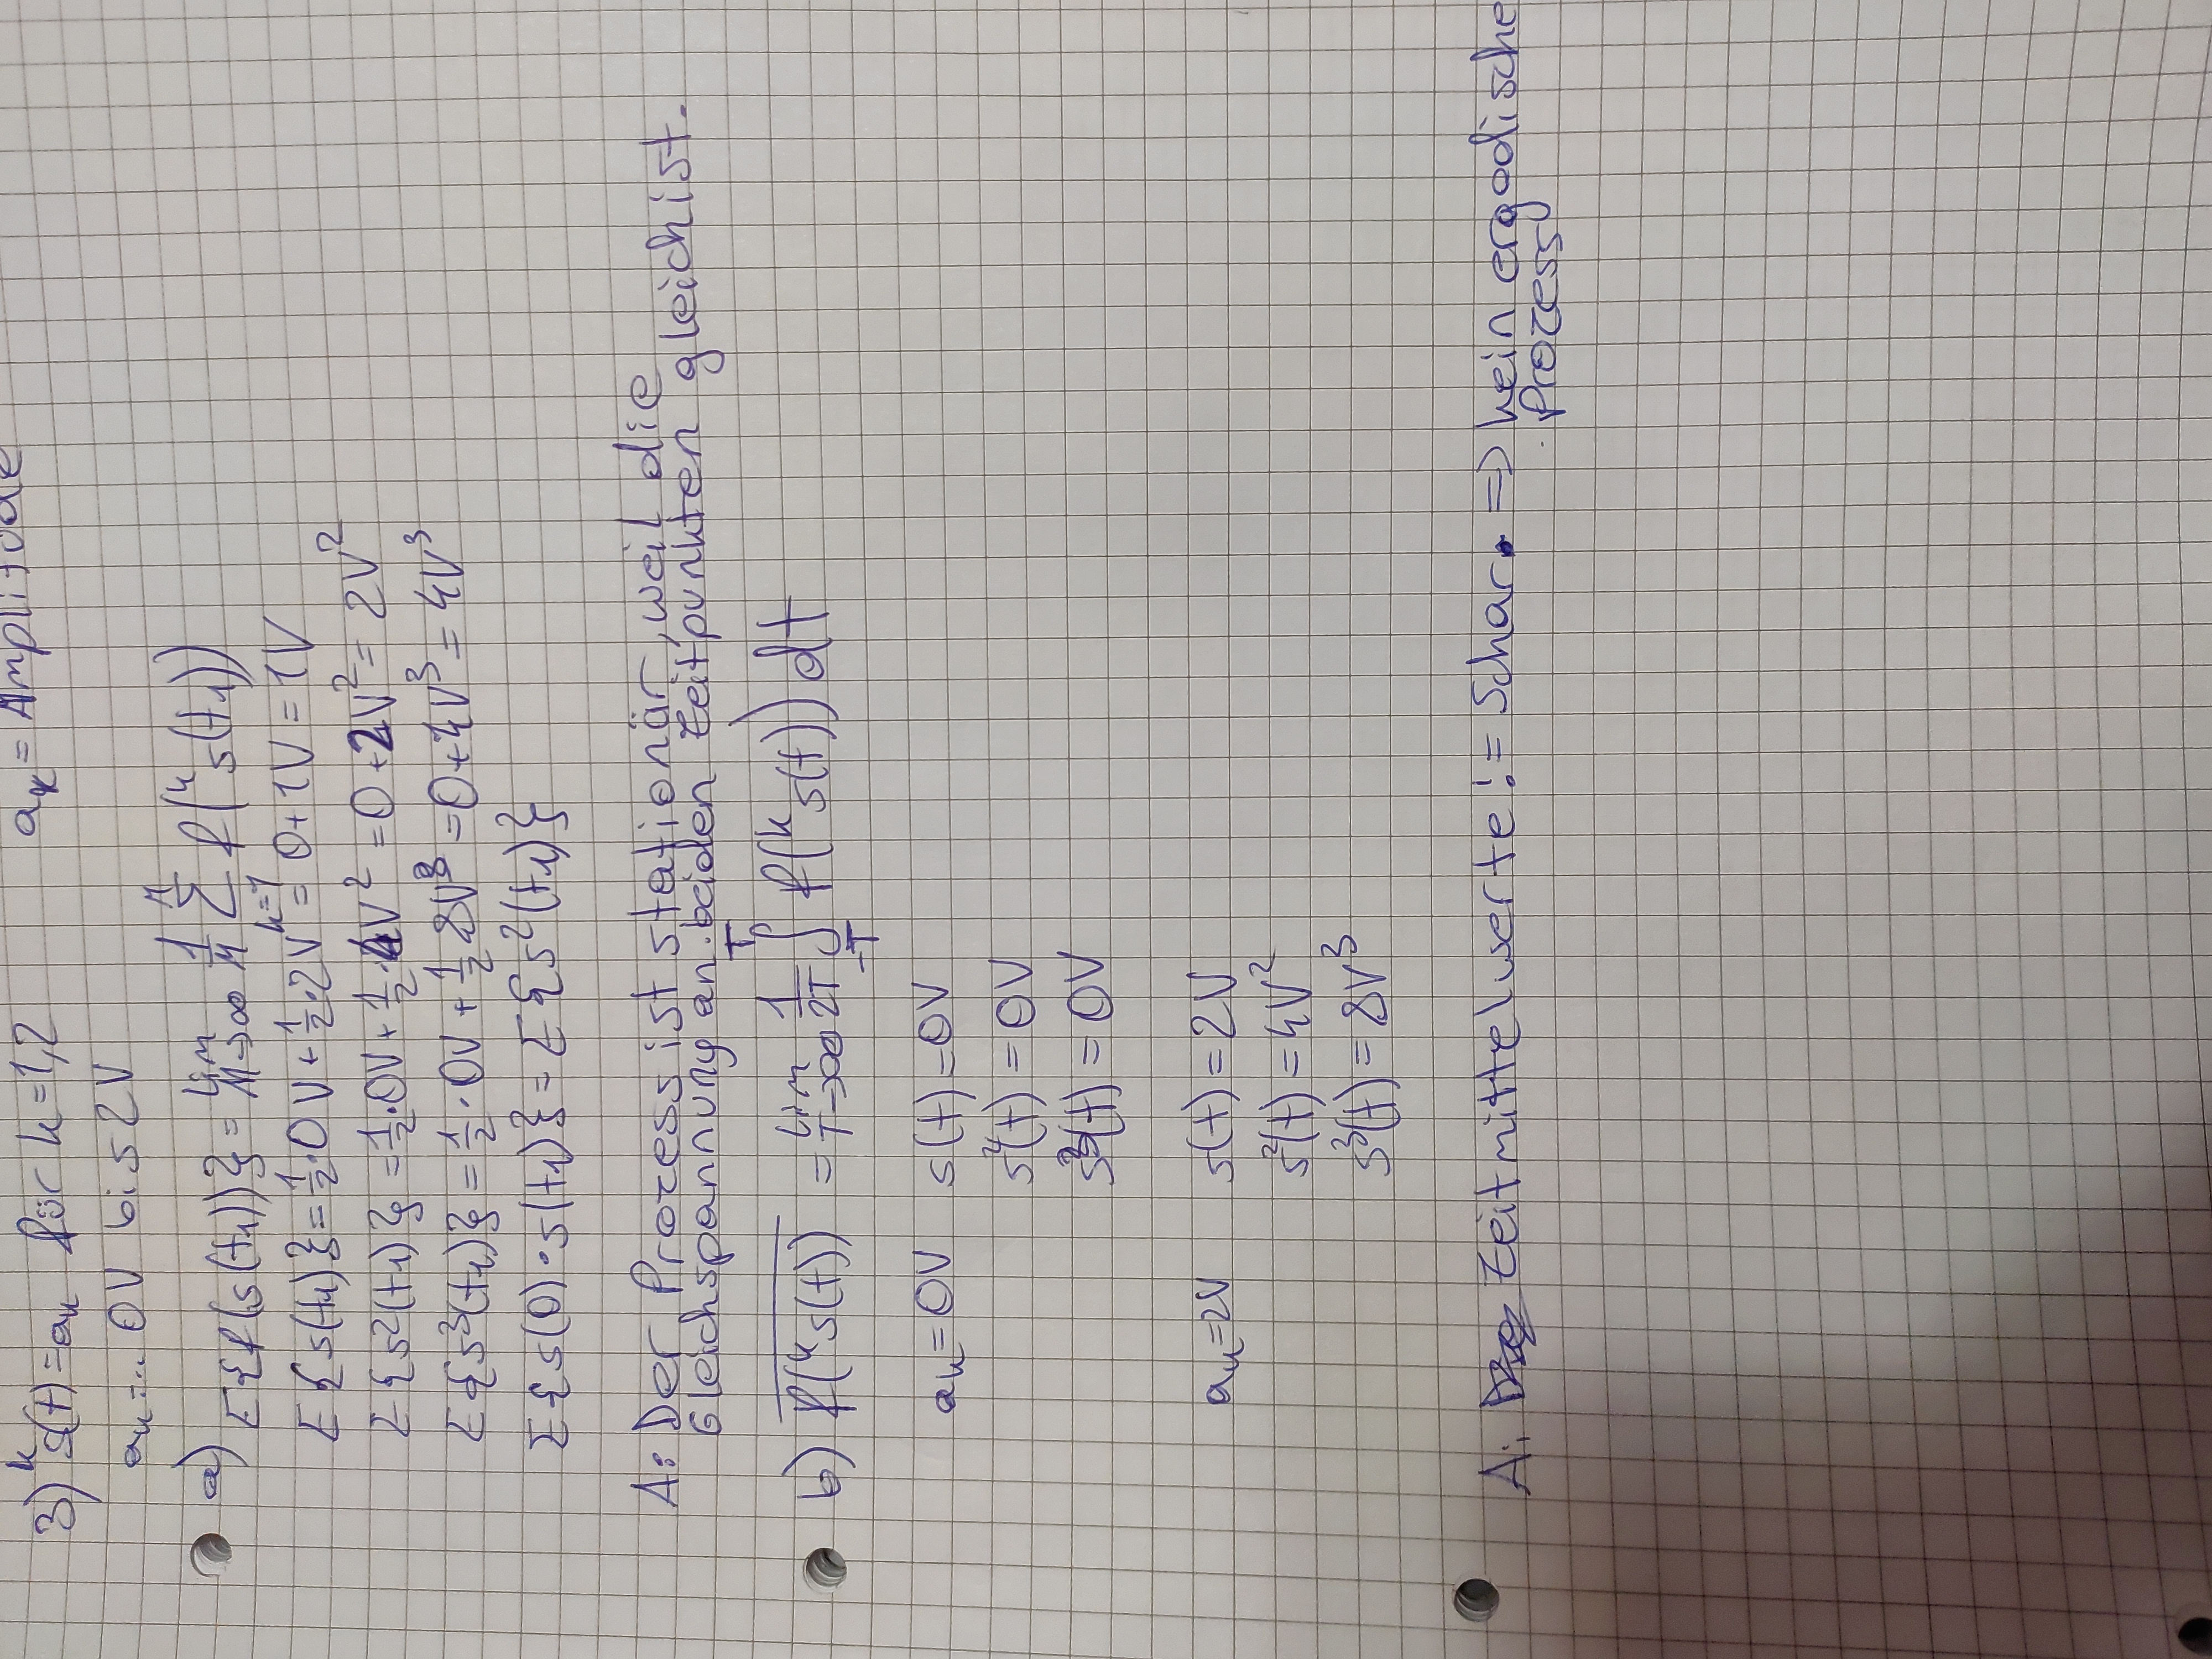 a_k = Amplitude
3) ᵏs(t) = a_k für k = 1,2
a_k = .. 0V bis 2V
a) E{f(s(t₁))} = lim M→∞ 1/M Σ k=1 M f(ᵏs(t₁))
E{s(t₁)} = 1/2 · 0V + 1/2 · 2V = 0 + 1V = 1V
E{s²(t₁)} = 1/2 · 0V + 1/2 · 4V² = 0 + 2V² = 2V²
E{s³(t₁)} = 1/2 · 0V + 1/2 8V³ = 0 + 4V³ = 4V³
E{s(0) · s(t₁)} = E{s²(t₁)}
A: Der Prozess ist stationär, weil die
Gleichspannung an beiden Zeitpunkten gleich ist.
b) \overline{f(ᵏs(t))} = lim T→∞ 1/2T ∫ -T T f(ᵏs(t)) dt
a_k = 0V s(t) = 0V
s²(t) = 0V
s³(t) = 0V
a_k = 2V s(t) = 2V
s²(t) = 4V²
s³(t) = 8V³
A: Zeitmittelwerte != Schar. => kein ergodische
Prozess